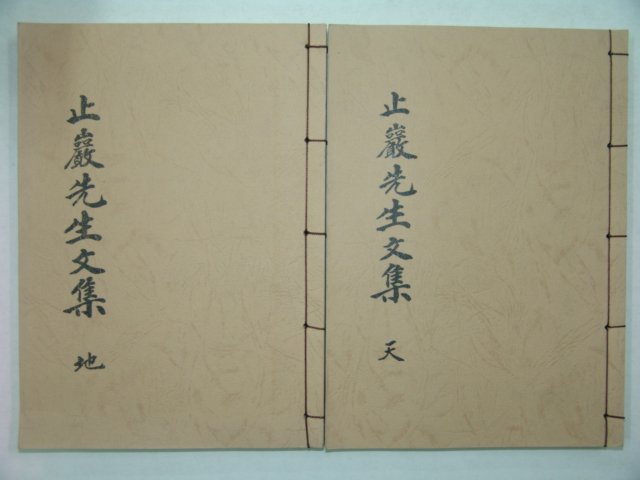 止巖先生文集 天
止巖先生文集 地